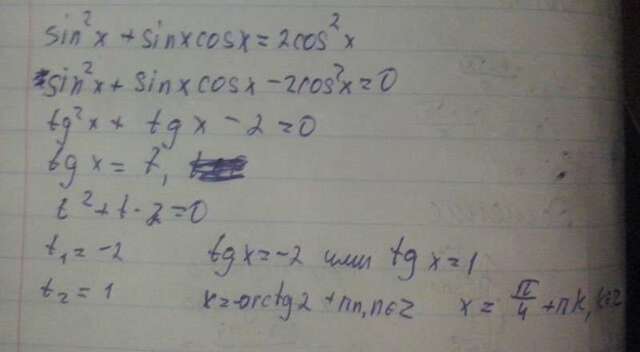 sin²x + sinxcosx = 2cos²x
sin²x + sinxcosx - 2cos²x = 0
tg²x + tgx - 2 = 0
tgx = t,
t² + t - 2 = 0
t₁ = -2 tgx = -2 или tgx = 1
t₂ = 1 x = -arctg2 + πn, n∈Z x = π/4 + πk, k∈Z